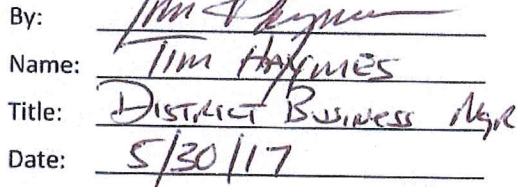 By: Tim Haymes
Name: Tim Haymes
Title: District Business Mgr
Date: 5/30/17